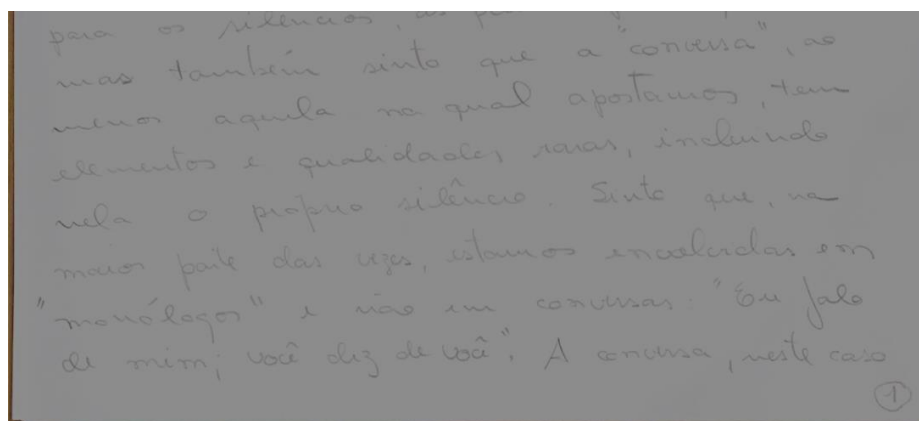 para os silêncios, as
mas também sinto que a "conversa", ao
menos aquela na qual apostamos, tem
elementos e qualidades raras, incluindo
nela o próprio silêncio. Sinto que, na
maior parte das vezes, estamos envolvidas em
"monólogos" e não em conversas: "Eu falo
de mim; você diz de você". A conversa, neste caso
1